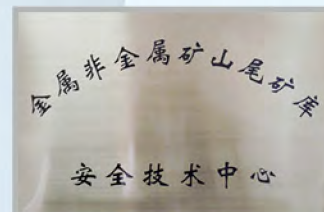 金属非金属矿山尾矿库
安全技术中心